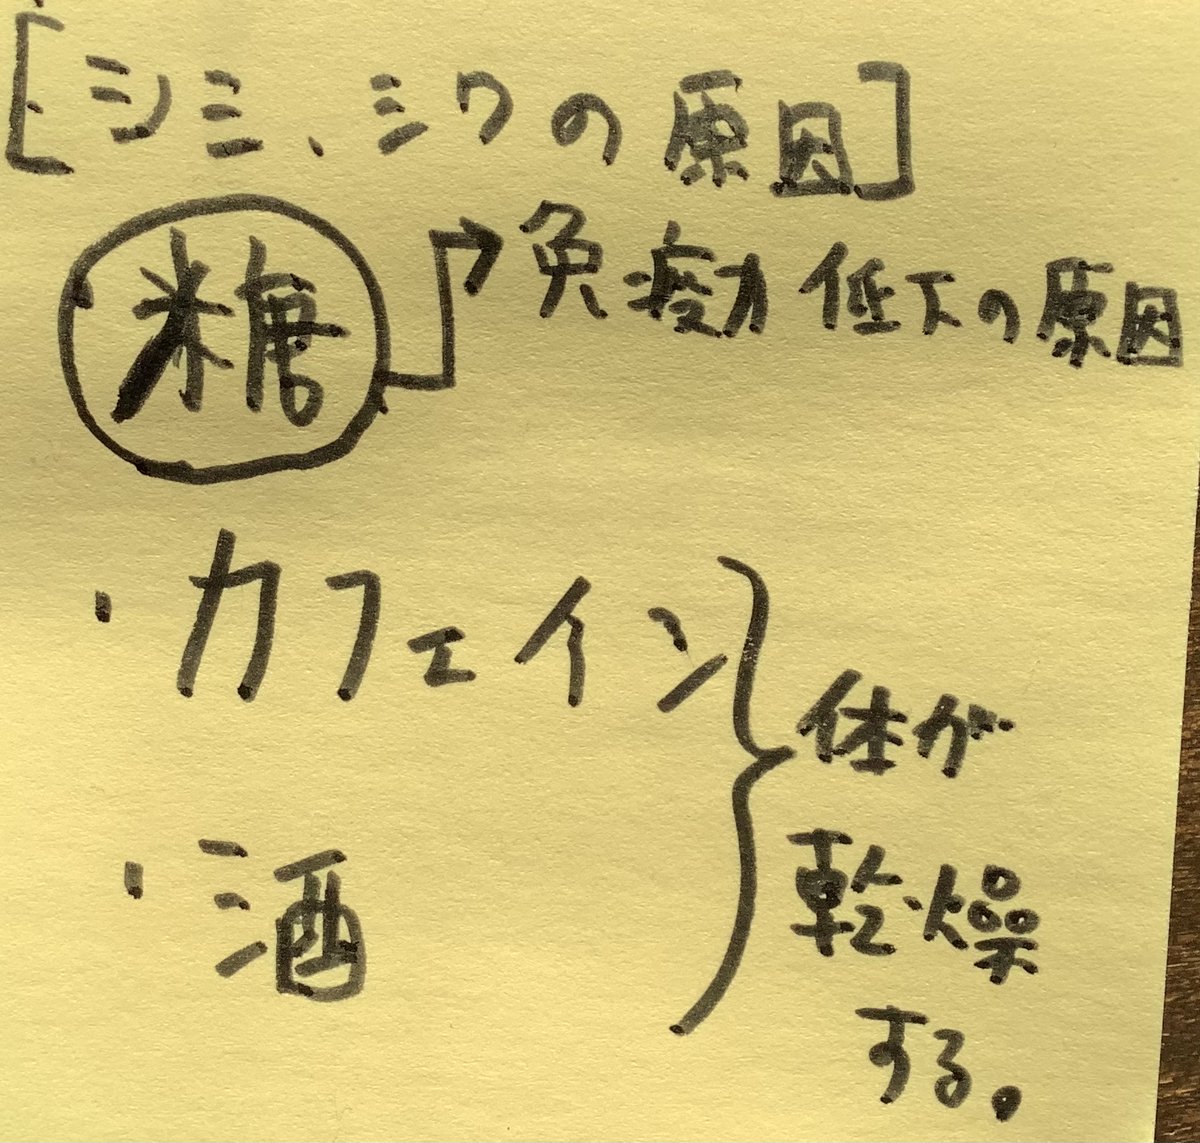 [シミ、シワの原因]
糖 → 免疫力低下の原因
・カフェイン
・酒
体が
乾燥
する。